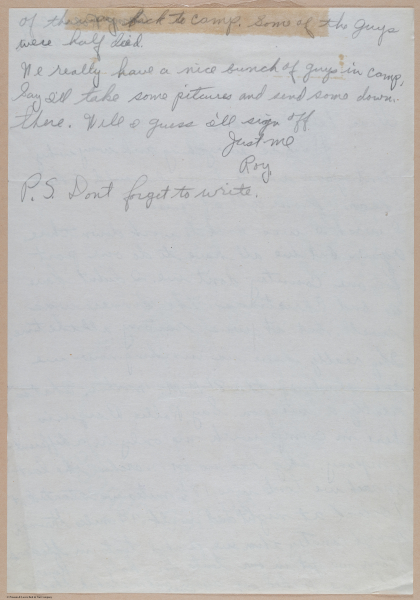 of the way back to camp. Some of the guys
were half died.
We really have a nice bunch of guys in camp,
Say I'll take some pitcures and send some down
there. Well I guess I'll sign off
Just me
Roy.
P.S. Dont forget to write.